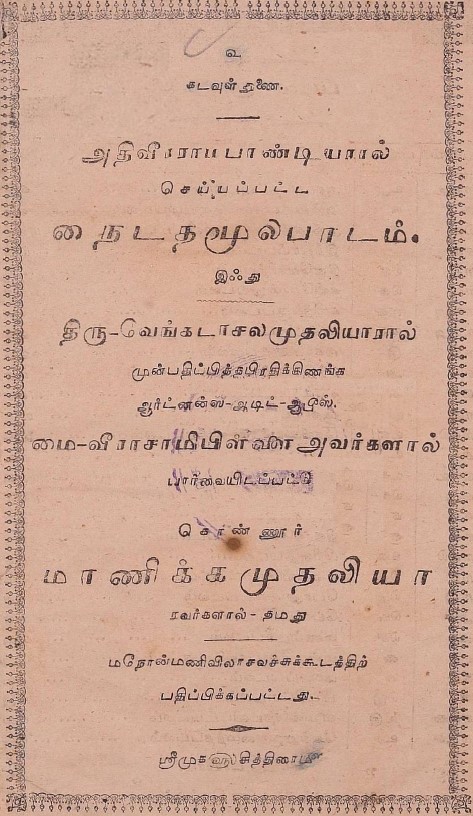 உ
கடவுள் துணை.
அதிவீரராமபாண்டியரால்
செய்யப்பட்ட
நைடதமூலபாடம்.
இஃது
திரு-வேங்கடாசலமுதலியாரால்
முன்பதிப்பித்தபிரதிக்கிணங்க
ஆர்ட்னன்ஸ்-ஆடிட்-ஆபீஸ்.
மை-வீராசாமிபிள்ளை அவர்களால்
பார்வையிடப்பட்டு
கொண்ணூர்
மாணிக்கமுதலியா
ரவர்களால்-தமது
மநோன்மணிவிலாசவச்சுக்கூடத்திற்
பதிப்பிக்கப்பட்டது.
ஸ்ரீமுக ௵ சித்திரை ௴